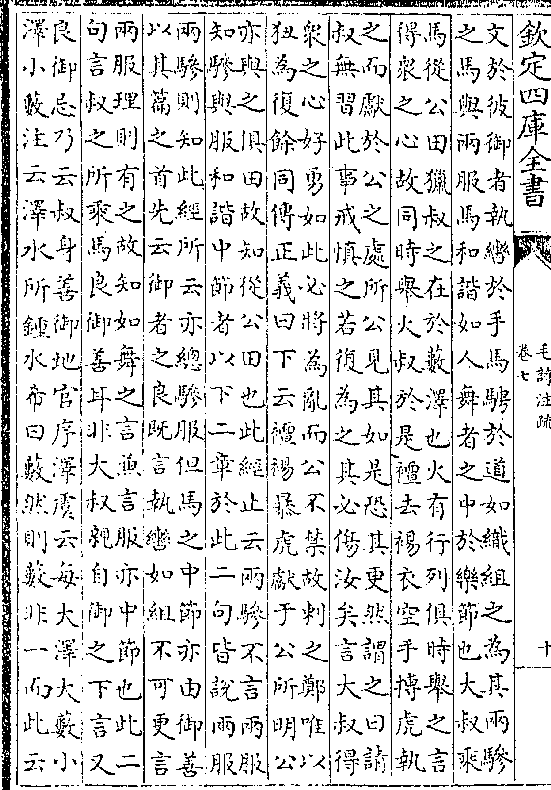 欽定四庫全書
毛詩注疏
卷七
十
文於彼御者執轡於手馬騁於道如織組之為其兩驂
之馬與兩服馬和諧如人舞者之中於樂節也大叔乘
馬從公田獵叔之在於藪澤也火有行列俱時舉之言
得衆之心故同時舉火叔於是襢去裼衣空手搏虎執
之而獻於公之處所公見其如是恐其更然謂之曰請
叔無習此事戒慎之若復為之其必傷汝矣言大叔得
衆之心好勇如此必將為亂而公不禁故刺之鄭唯以
狃為復餘同傳正義曰下云襢裼暴虎獻于公所明公
亦與之俱田故知從公田也此經止云兩驂不言兩服
知驂與服和諧中節者以下二章於此二句皆說兩服
兩驂則知此經所云亦總驂服但馬之中節亦由御善
以其篇之首先云御者之良既言執轡如組不可更言
兩服理則有之故知如舞之言兼言服亦中節也此二
句言叔之所乘馬良御善耳非大叔親自御之下言又
良御忌乃云叔身善御地官序澤虞云每大澤大藪小
澤小藪注云澤水所鍾水希曰藪然則藪非一而此云